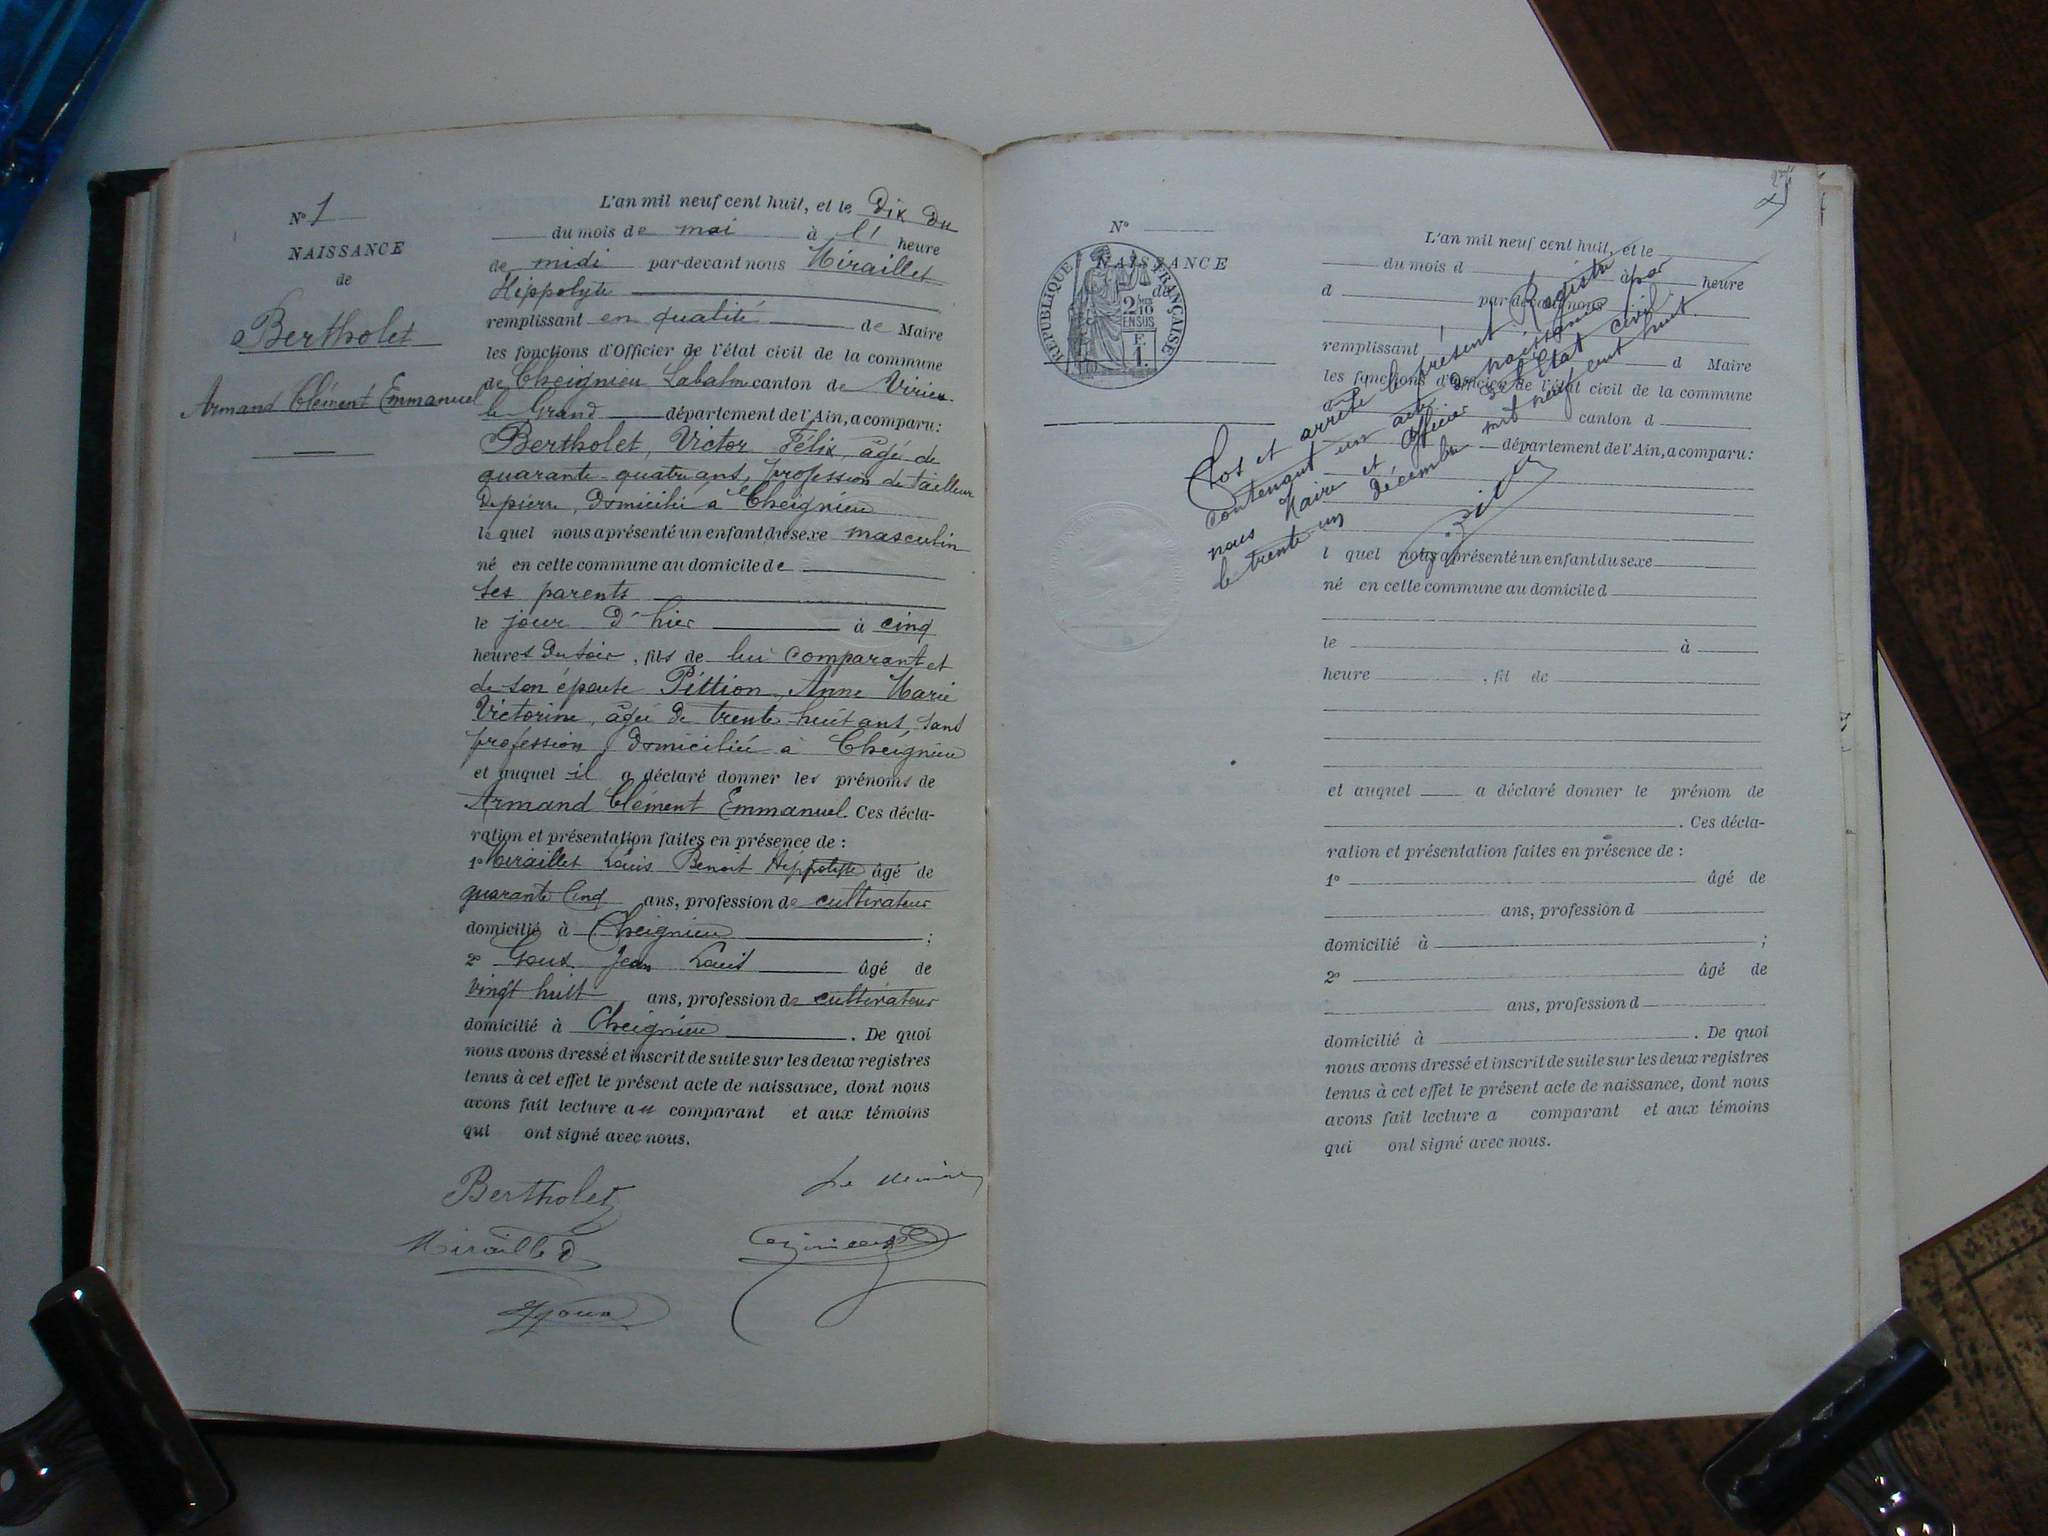 N° 1
NAISSANCE
de
Bertholet
Armand Clément Emmanuel
L'an mil neuf cent huit, et le Dix du
du mois de mai à l' heure
de midi par-devant nous Miraillet
Hippolyte
remplissant en qualité de Maire
les fonctions d'Officier de l'état civil de la commune
de Cheignieu Labalme canton de Virieu
le Grand département de l'Ain, a comparu:
Bertholet, Victor Félix, âgé de
quarante-quatre ans, profession de tailleur
de pierre, domicilié à Cheignieu
lequel nous a présenté un enfant du sexe masculin
né en cette commune au domicile de
ses parents
le jour d'hier à cinq
heures du soir, fils de lui comparant et
de son épouse Pittion, Anne Marie
Victorine, âgée de trente huit ans, sans
profession, domiciliée à Cheignieu
et auquel il a déclaré donner les prénoms de
Armand Clément Emmanuel. Ces décla-
ration et présentation faites en présence de :
1° Miraillet Louis Benoit Hippolyte âgé de
quarante cinq ans, profession de cultivateur
domicilié à Cheignieu ;
2° Goux Jean Louis âgé de
vingt huit ans, profession de cultivateur
domicilié à Cheignieu . De quoi
nous avons dressé et inscrit de suite sur les deux registres
tenus à cet effet le présent acte de naissance, dont nous
avons fait lecture au comparant et aux témoins
qui ont signé avec nous.
Bertholet Le Maire
Miraillet
Goux
N°
NAISSANCE
de
RÉPUBLIQUE FRANÇAISE
2/10
EN SUS
1.
L'an mil neuf cent huit, et le
du mois d à heure
d par-devant nous
remplissant d Maire
les fonctions d'Officier de l'état civil de la commune
d canton d
département de l'Ain, a comparu:
Clos et arrêté le présent Registre
contenant un acte de naissance par
nous Maire et Officier de l'Etat civil
le trente un décembre mil neuf cent huit.
l quel nous a présenté un enfant du sexe
né en cette commune au domicile d
le à
heure , fil de
et auquel a déclaré donner le prénom de
. Ces décla-
ration et présentation faites en présence de :
1° âgé de
ans, profession d
domicilié à ;
2° âgé de
ans, profession d
domicilié à . De quoi
nous avons dressé et inscrit de suite sur les deux registres
tenus à cet effet le présent acte de naissance, dont nous
avons fait lecture a comparant et aux témoins
qui ont signé avec nous.